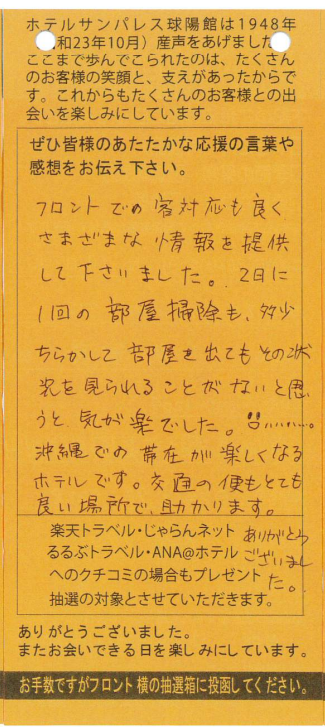 ホテルサンパレス球陽館は1948年
和23年10月）産声をあげました
ここまで歩んでこられたのは、たくさん
のお客様の笑顔と、支えがあったからで
す。これからもたくさんのお客様との出
会いを楽しみにしています。
ぜひ皆様のあたたかな応援の言葉や
感想をお伝え下さい。
フロントでの客対応も良く
さまざまな情報を提供
して下さいました。2日に
1回の部屋掃除も、多少
ちらかして部屋を出てもその状
況を見られることがないと思
うと気が楽でした。
沖縄での滞在が楽しくなる
ホテルです。交通の便もとても
良い場所で、助かります。
ありがとう
ございまし
た。
楽天トラベル・じゃらんネット
るるぶトラベル・ANA@ホテル
へのクチコミの場合もプレゼント
抽選の対象とさせていただきます。
ありがとうございました。
またお会いできる日を楽しみにしています。
お手数ですがフロント横の抽選箱に投函してください。